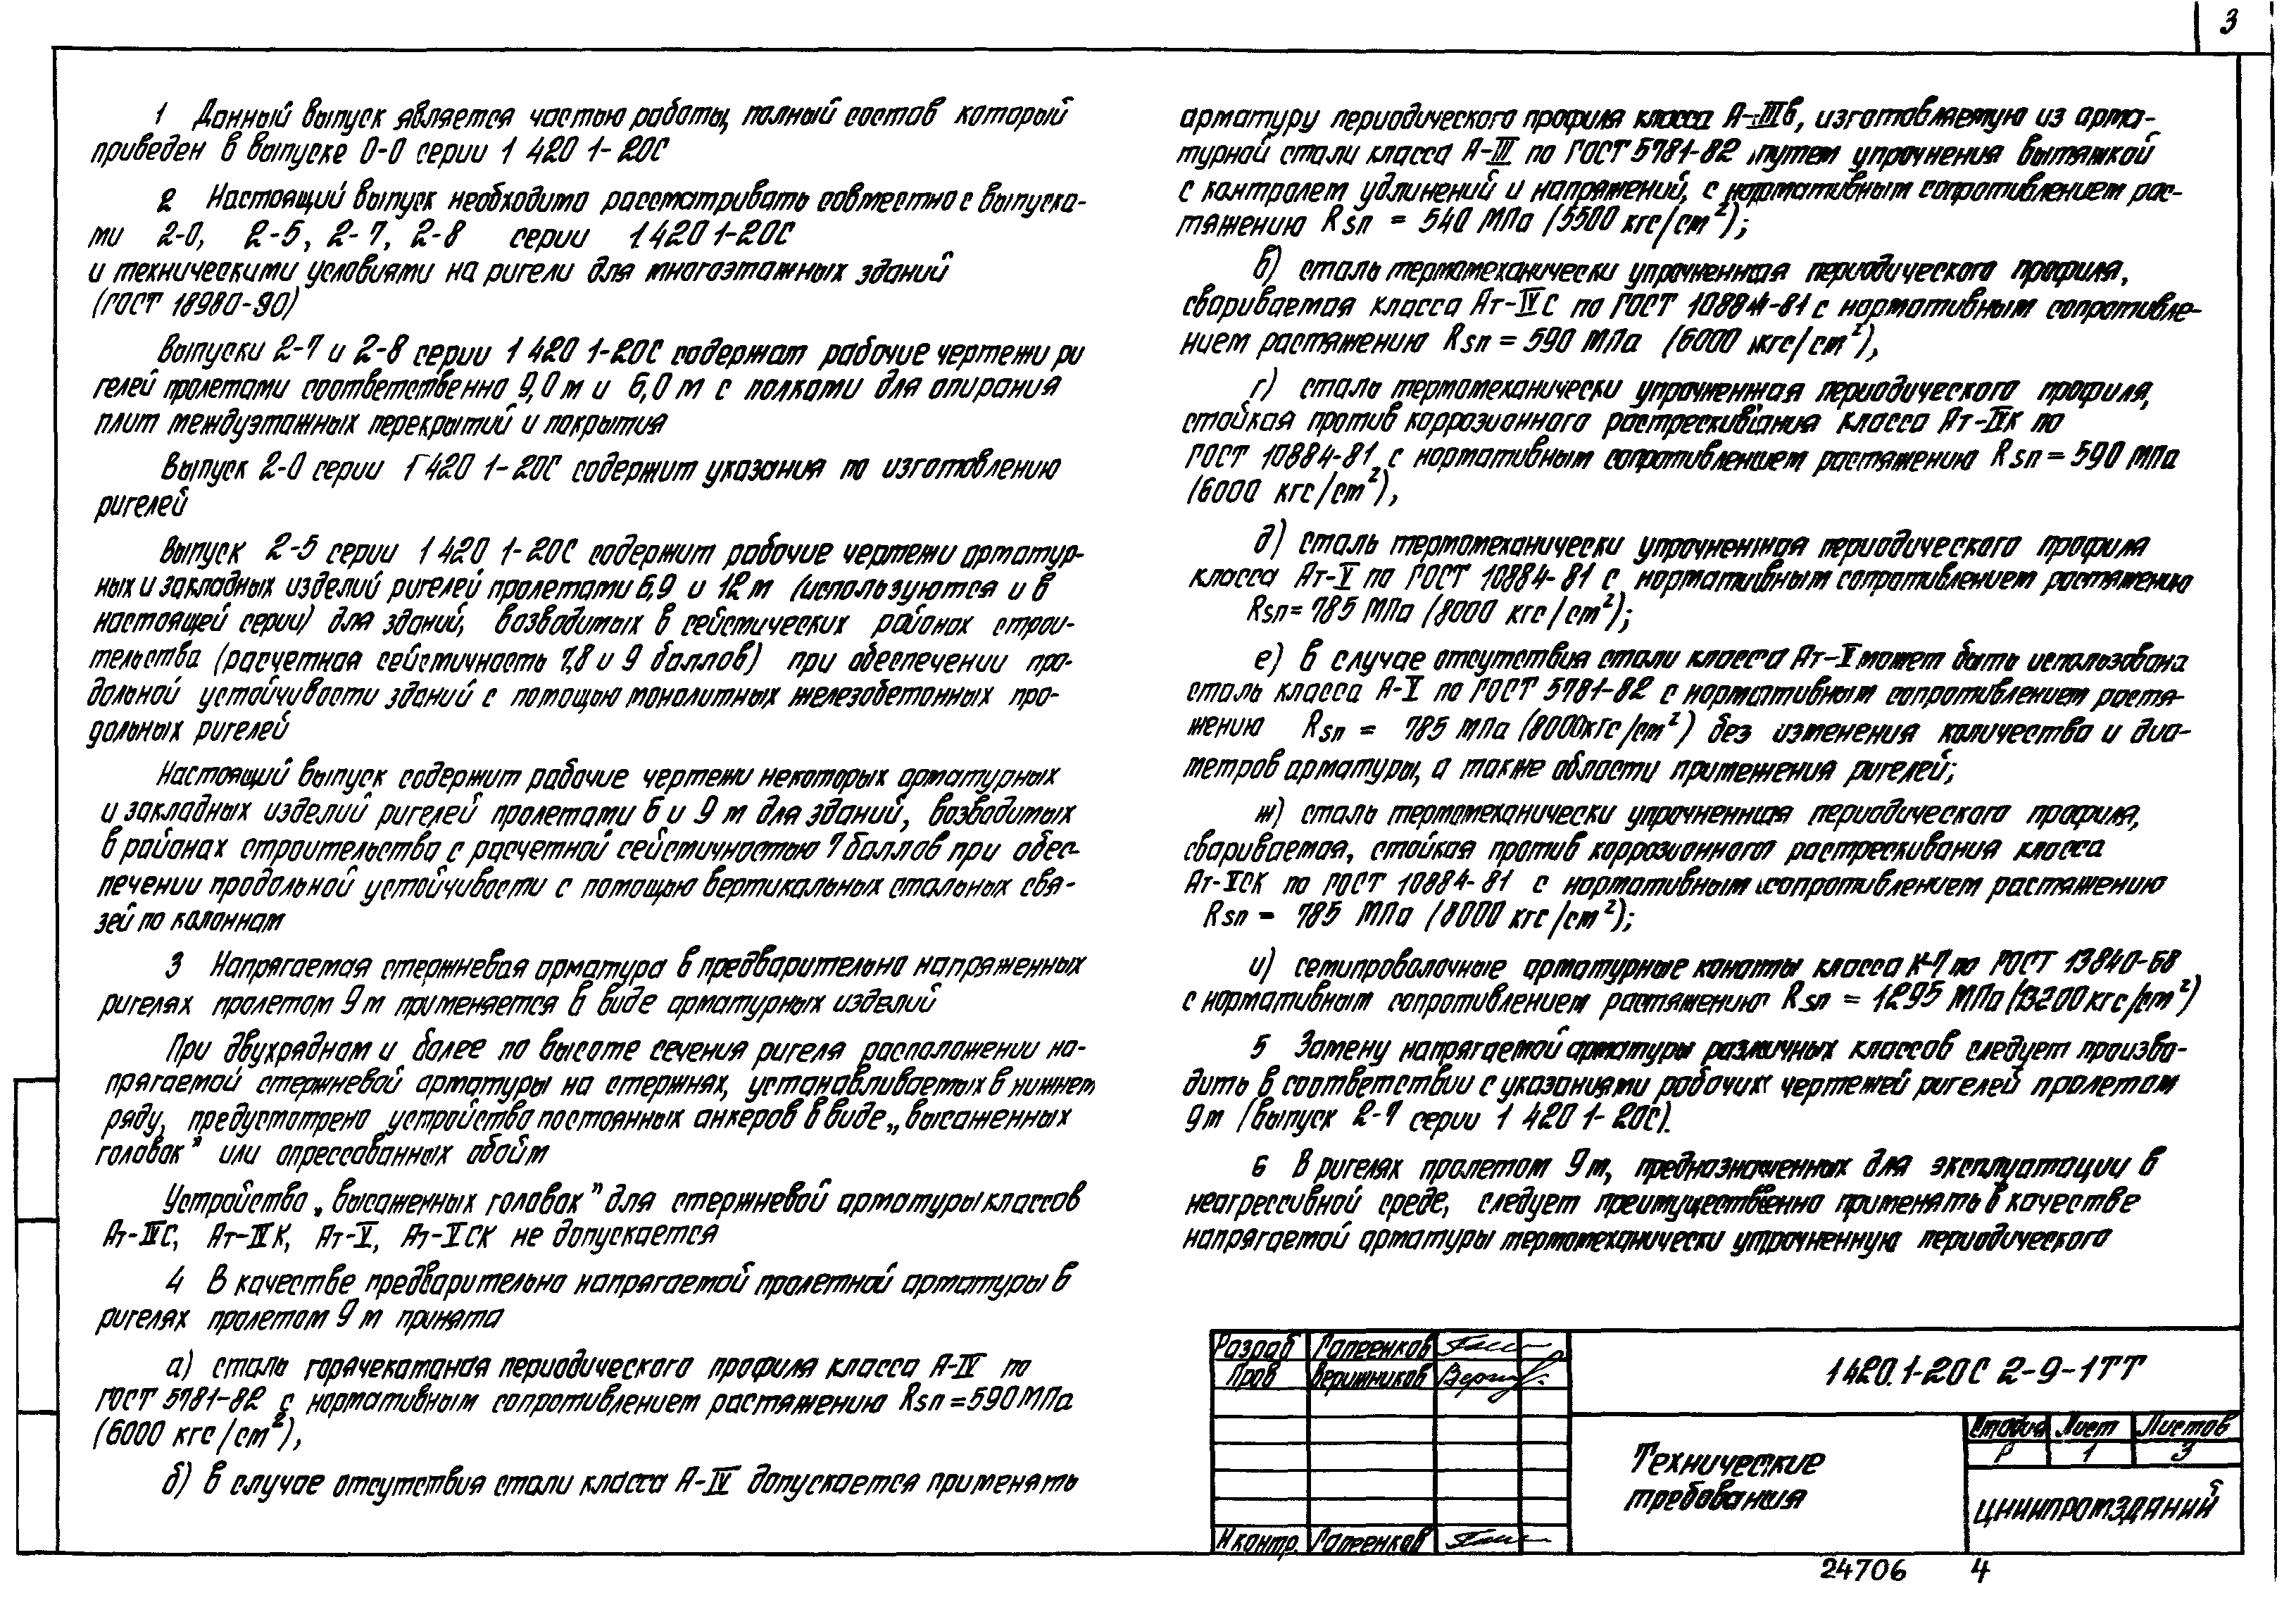 3
1 Данный выпуск является частью работы, полный состав который
приведен в выпуске 0-0 серии 1 420 1-20С
2 Настоящий выпуск необходимо рассматривать совместно с выпуска-
ми 2-0, 2-5, 2-7, 2-8 серии 1.420 1-20С
и техническими условиями на ригели для многоэтажных зданий
(ГОСТ 18980-90)
Выпуски 2-7 и 2-8 серии 1 420 1-20С содержат рабочие чертежи ри
гелей пролетами соответственно 9,0 м и 6,0 м с полками для опирания
плит междуэтажных перекрытий и покрытия
Выпуск 2-0 серии 1 420 1-20С содержит указания по изготовлению
ригелей
Выпуск 2-5 серии 1 420 1-20С содержит рабочие чертежи арматур-
ных и закладных изделий ригелей пролетами 6,9 и 12 м (используются и в
настоящей серии) для зданий, возводимых в сейсмических районах строи-
тельства (расчетная сейсмичность 7,8 и 9 баллов) при обеспечении про-
дольной устойчивости зданий с помощью монолитных железобетонных про-
дольных ригелей
Настоящий выпуск содержит рабочие чертежи некоторых арматурных
и закладных изделий ригелей пролетами 6 и 9 м для зданий, возводимых
в районах строительства с расчетной сейсмичностью 7 баллов при обес-
печении продольной устойчивости с помощью вертикальных стальных свя-
зей по колоннам
3 Напрягаемая стержневая арматура в предварительно напряженных
ригелях пролетом 9 м применяется в виде арматурных изделий
При двухрядном и более по высоте сечения ригеля расположении на-
прягаемой стержневой арматуры на стержнях, устанавливаемых в нижнем
ряду, предусмотрено устройство постоянных анкеров в виде „высаженных
головок” или опрессованных обойм
Устройство „высаженных головок” для стержневой арматуры классов
Ат-IVС, Ат-IVК, Ат-V, Ат-VСК не допускается
4 В качестве предварительно напрягаемой пролетной арматуры в
ригелях пролетом 9 м принята
а) сталь горячекатаная периодического профиля класса А-IV по
ГОСТ 5781-82 с нормативным сопротивлением растяжению Rsп = 590 МПа
(6000 кгс/см²),
б) в случае отсутствия стали класса А-IV допускается применять
арматуру периодического профиля класса А-IIIв, изготовляемую из арма-
турной стали класса А-III по ГОСТ 5781-82 путем упрочнения вытяжкой
с контролем удлинений и напряжений, с нормативным сопротивлением рас-
тяжению Rsп = 540 МПа (5500 кгс/см²);
в) сталь термомеханически упрочненная периодического профиля,
свариваемая класса Ат-IVС по ГОСТ 10884-81 с нормативным сопротивле-
нием растяжению Rsп = 590 МПа (6000 кгс/см²),
г) сталь термомеханически упрочненная периодического профиля,
стойкая против коррозионного растрескивания класса Ат-IVК по
ГОСТ 10884-81 с нормативным сопротивлением растяжению Rsп = 590 МПа
(6000 кгс/см²),
д) сталь термомеханически упрочненная периодического профиля
класса Ат-V по ГОСТ 10884-81 с нормативным сопротивлением растяжению
Rsп = 785 МПа (8000 кгс/см²);
е) в случае отсутствия стали класса Ат-V может быть использована
сталь класса А-V по ГОСТ 5781-82 с нормативным сопротивлением растя-
жению Rsп = 785 МПа (8000 кгс/см²) без изменения количества и диа-
метров арматуры, а также области применения ригелей;
ж) сталь термомеханически упрочненная периодического профиля,
свариваемая, стойкая против коррозионного растрескивания класса
Ат-VСК по ГОСТ 10884-81 с нормативным сопротивлением растяжению
Rsп = 785 МПа (8000 кгс/см²);
и) семипроволочные арматурные канаты класса К-7 по ГОСТ 13840-68
с нормативным сопротивлением растяжению Rsп = 1295 МПа (13200 кгс/см²)
5 Замену напрягаемой арматуры различных классов следует произво-
дить в соответствии с указаниями рабочих чертежей ригелей пролетом
9 м (выпуск 2-7 серии 1 420 1-20С).
6 В ригелях пролетом 9 м, предназначенных для эксплуатации в
неагрессивной среде, следует преимущественно применять в качестве
напрягаемой арматуры термомеханически упрочненную периодического
Разраб Гапеенков
Пров Верижников
Н контр. Гапеенков
1 420.1-20С 2-9-1ТТ
Технические
требования
Стадия Лист Листов
Р 1 3
ЦНИИПРОМЗДАНИЙ
24706 4